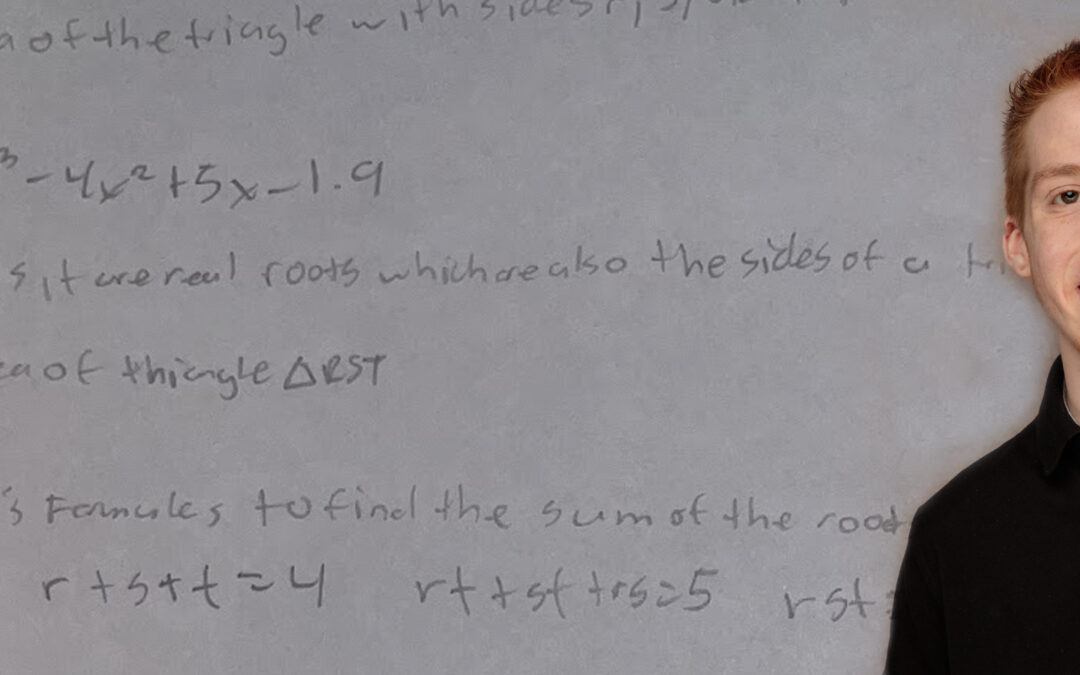 a of the triagle with sides r, s,
3 - 4x² + 5x - 1.9
s, t are real roots which are also the sides of a tri
ea of thiangle △RST
's Formules to find the sum of the root
r + s + t = 4 rt + st + rs = 5 rst =